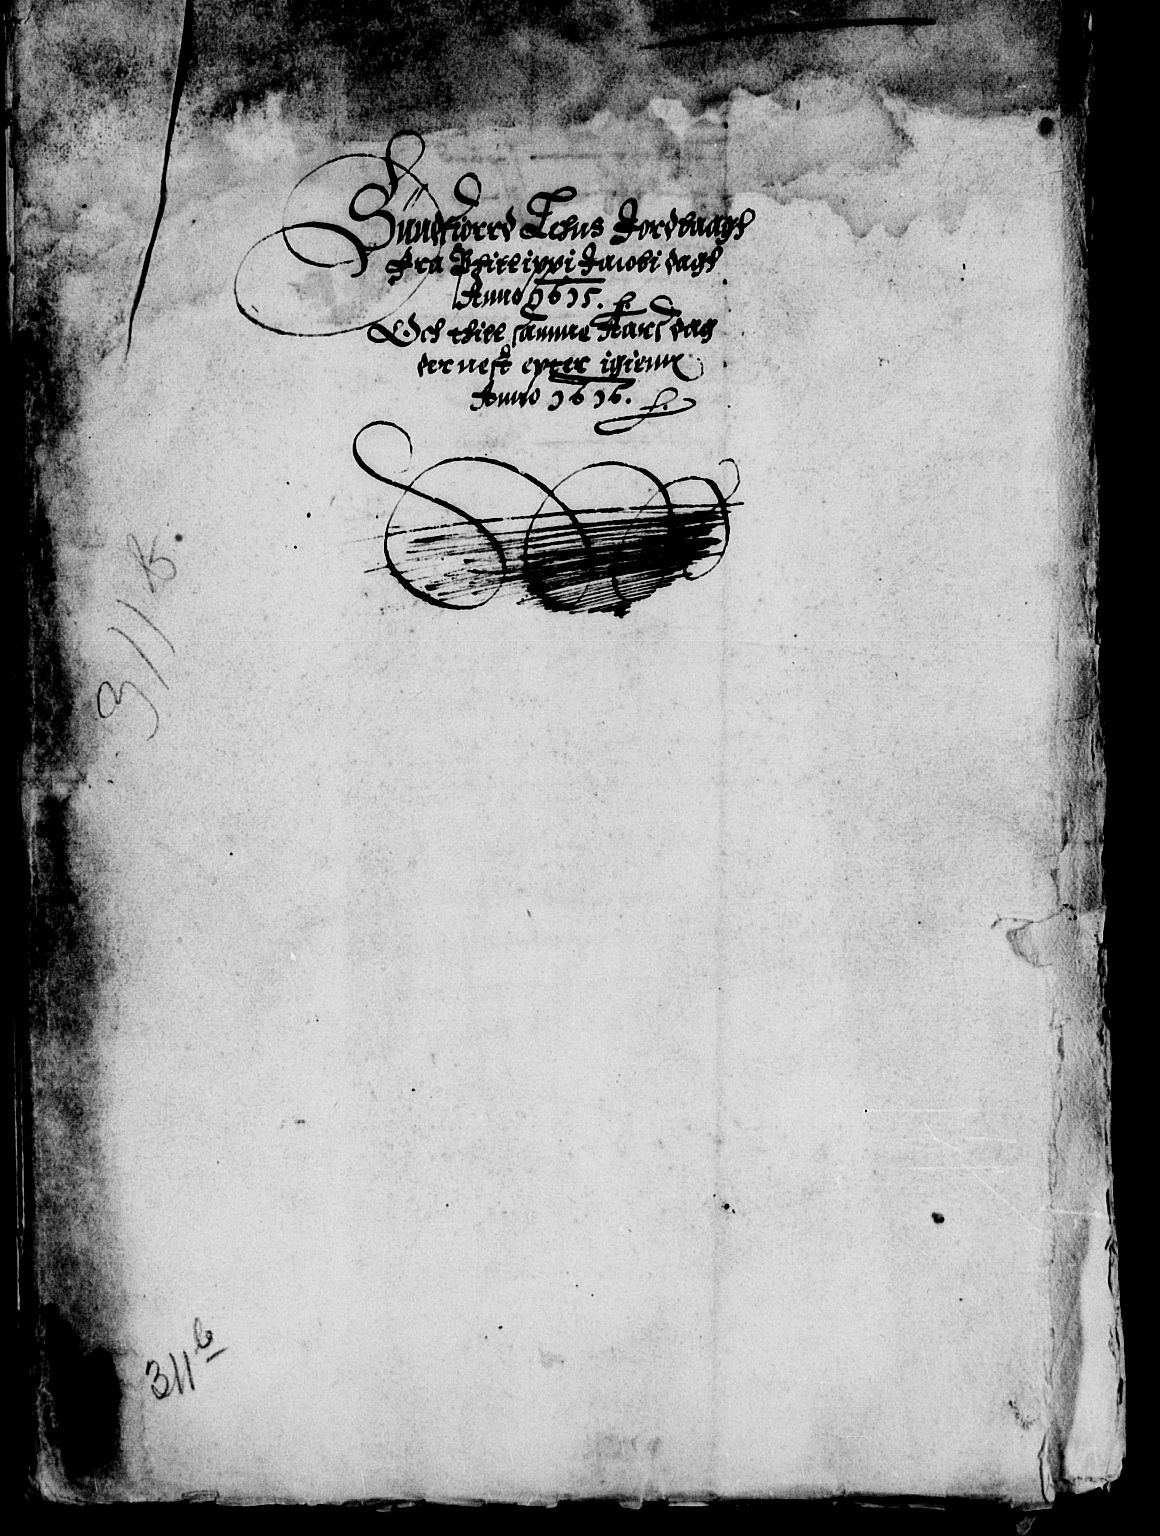 Sundfiorrd Lehns Jordbaagh
Fra Philippi Jacobi dagh
Anno 1615.
Och thill samme Aars dag
der nest epter igienn
Anno 1616.
311 B.
311 b